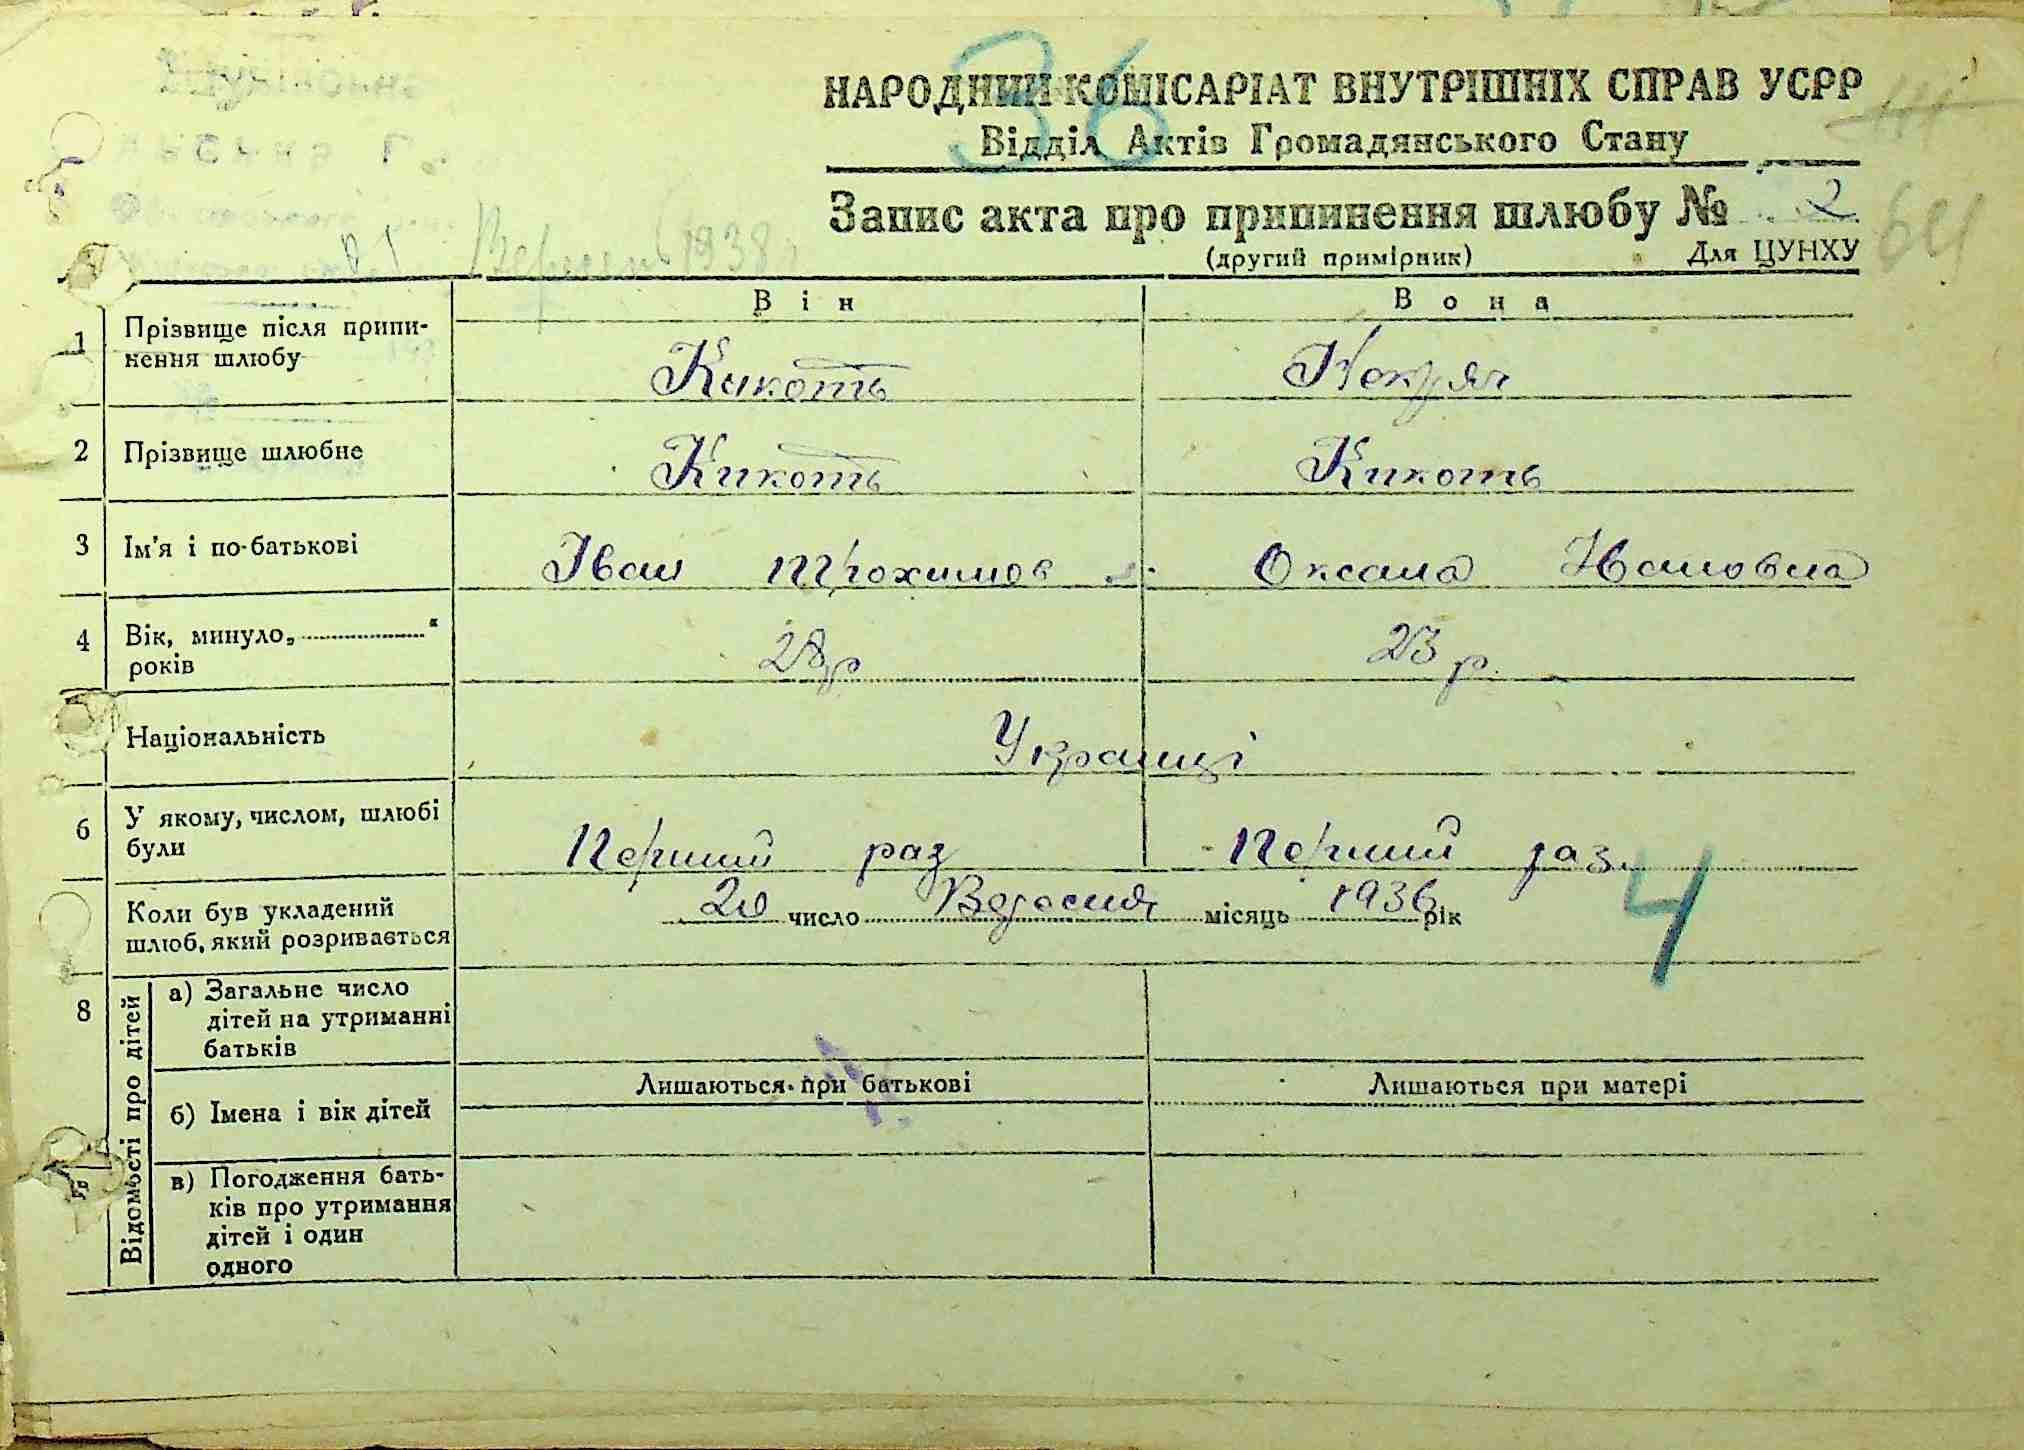 36
НАРОДНИЙ КОМІСАРІАТ ВНУТРІШНІХ СПРАВ УСРР
Відділ Актів Громадянського Стану
Запис акта про припинення шлюбу № 2
64
(другий примірник) Для ЦУНХУ
1938
Він Вона
1 Прізвище після припи-
нення шлюбу Кикоть
2 Прізвище шлюбне Кикоть Кикоть
3 Ім'я і по-батькові Іван Трохимов Оксана Івановна
4 Вік, минуло „ “
років 28 р 23 р.
Національність Українці
6 У якому, числом, шлюбі
були Перший раз Перший раз
Коли був укладений
шлюб, який розривається 20 число місяць 1936 рік
4
8 Відомості про дітей
а) Загальне число
дітей на утриманні
батьків
Лишаються при батькові Лишаються при матері
б) Імена і вік дітей
в) Погодження бать-
ків про утримання
дітей і один
одного